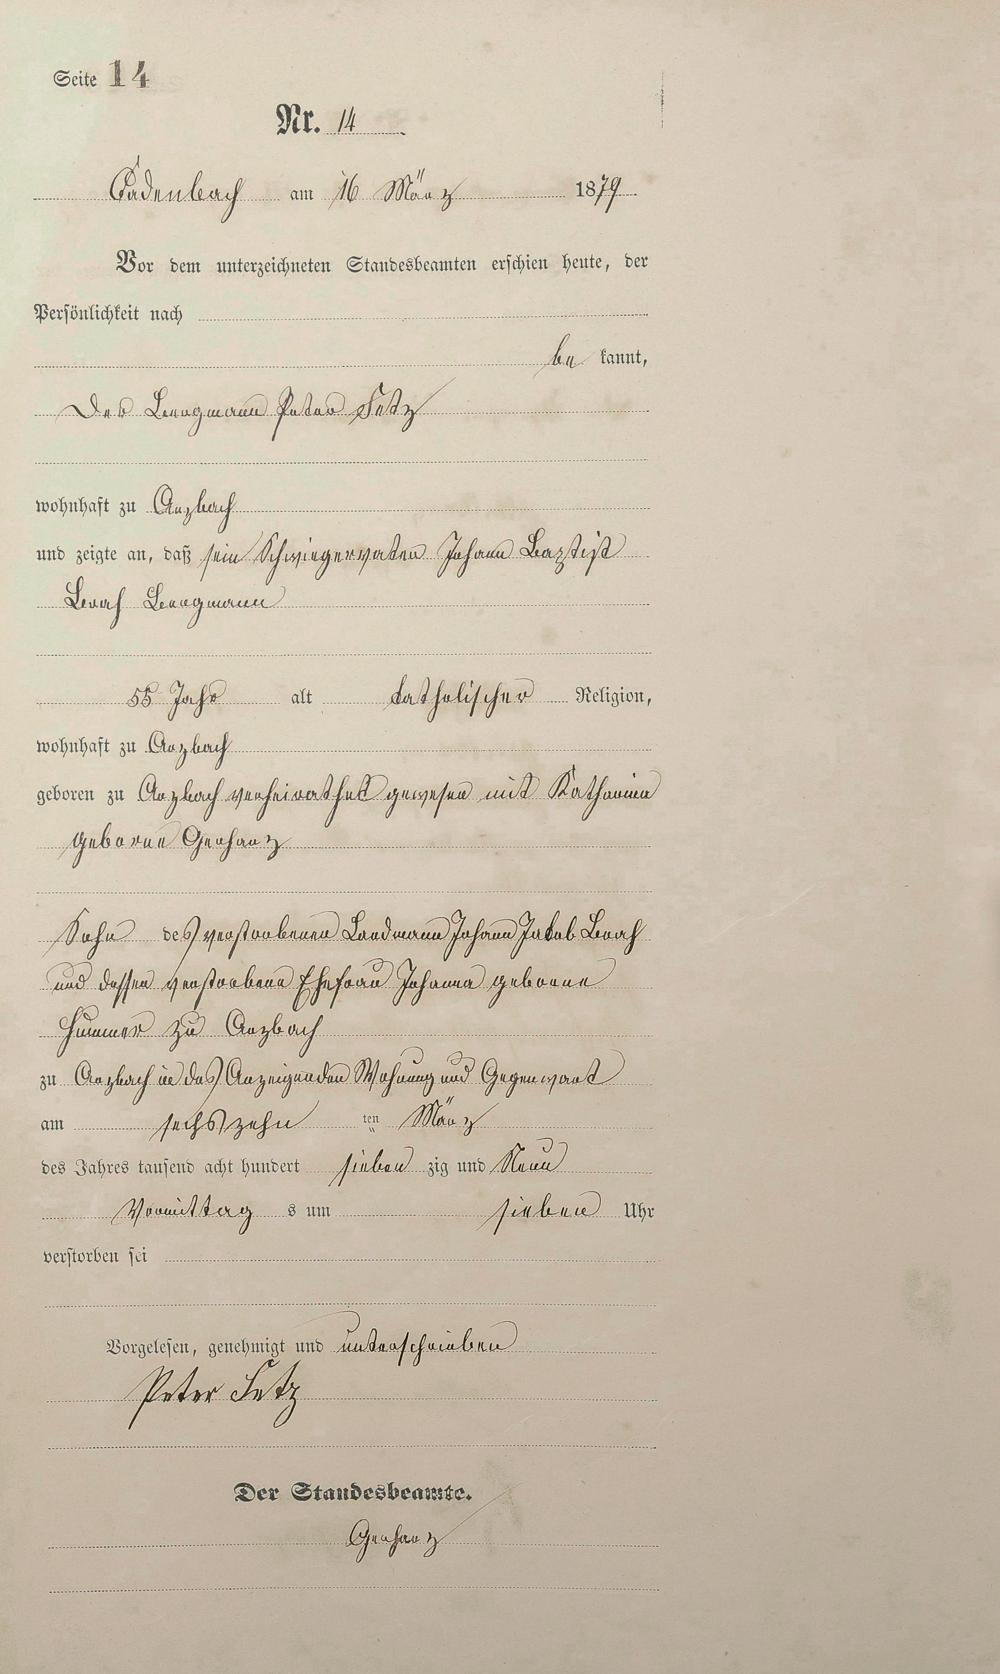 Seite 14
Nr. 14
Cadenbach am 16 März 1879
Vor dem unterzeichneten Standesbeamten erschien heute, der
Persönlichkeit nach
be kannt,
Der Bergmann Peter Fetz
wohnhaft zu Arzbach
und zeigte an, daß sein Schwiegervater Johann Baptist
Bergmann
55 Jahr alt katholischer Religion,
wohnhaft zu Arzbach
geboren zu Arzbach verheirathet gewesen mit Katharina
geborne Gerharz
Sohn des verstorbenen Landmann Johann Jakob
und dessen verstorbene Ehefrau Johanna geborene
Hummer zu Arzbach
zu Arzbach in des Anzeigenden Wohnung und Gegenwart
am sechszehn ten März
des Jahres tausend acht hundert sieben zig und Neun
Vormittag s um sieben Uhr
verstorben sei
Vorgelesen, genehmigt und unterschrieben
Peter Fetz
Der Standesbeamte.
Gerharz